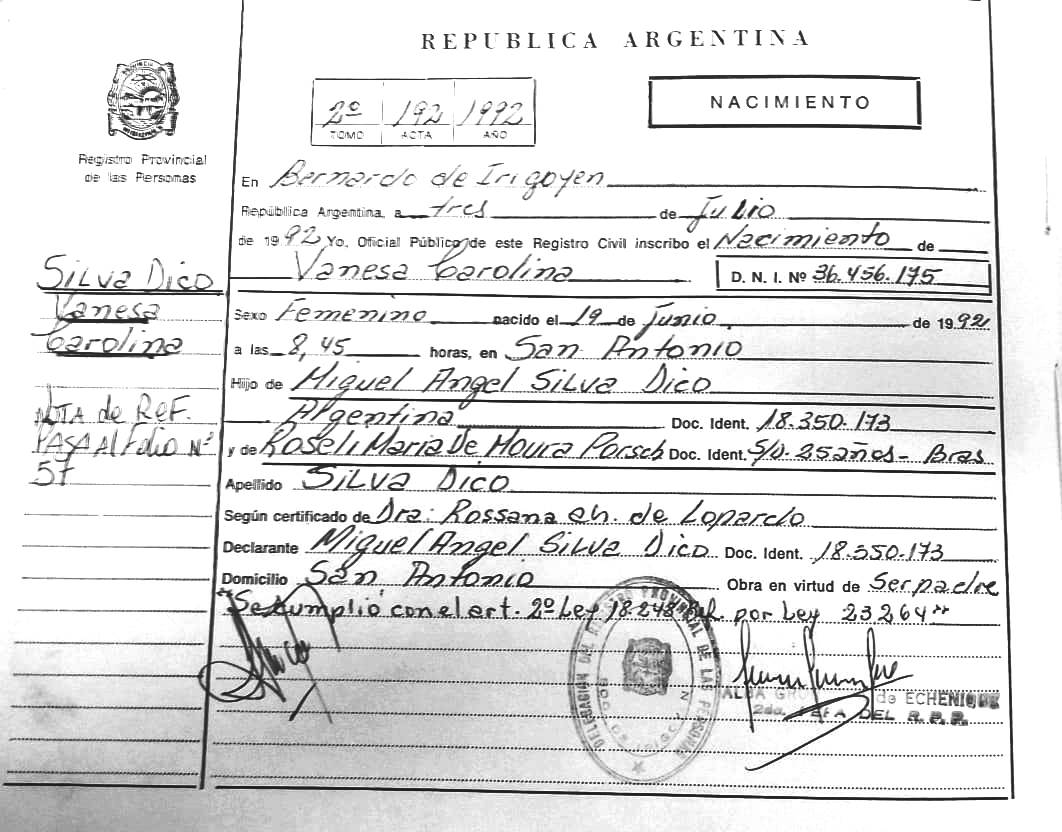 REPUBLICA ARGENTINA
2º 192 1992
TOMO ACTA AÑO
NACIMIENTO
Registro Provincial
de las Personas
En Bernardo de Irigoyen
República Argentina, a tres de Julio
de 1992 Yo, Oficial Público de este Registro Civil inscribo el Nacimiento de
Vanesa Carolina D. N. I. Nº 36.456.175
Sexo Femenino nacido el 19 de Junio de 1992
a las 8,45 horas, en San Antonio
Hijo de Miguel Angel Silva Dico
Argentina Doc. Ident. 18.350.173
y de Roseli Maria De Moura Porsch Doc. Ident. S/D. 25 años - Bras
Apellido Silva Dico
Según certificado de Dra: Rossana ch. de Lopardo
Declarante Miguel Angel Silva Dico Doc. Ident. 18.350.173
Domicilio San Antonio Obra en virtud de Ser padre
"Se cumplió con el art. 2º Ley 18.248 por Ley 23264"
Silva Dico
Vanesa
Carolina
NOTA de REF.
PASA Al Folio Nº
57
DELEGACION DEL REGISTRO PROVINCIAL DE LAS PERSONAS
ALBA de ECHENIQUE
2da. JEFA DEL R.P.P.